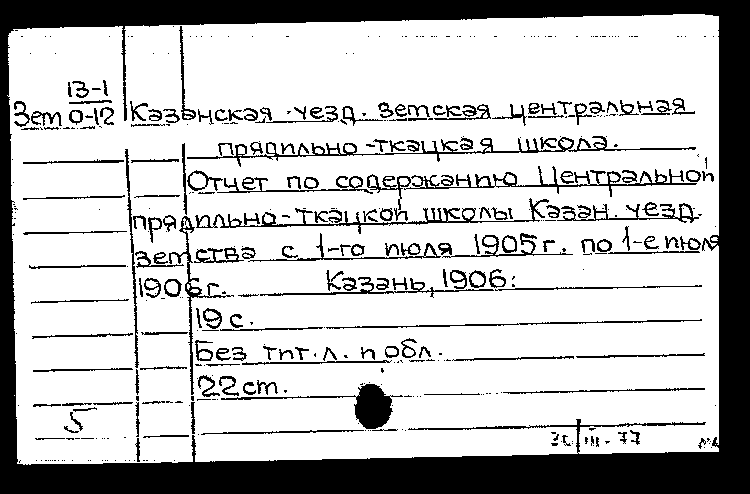 13-1
Зем 0-12 Казанская уезд. земская центральная
прядильно-ткацкая школа.
Отчет по содержанию Центральной
прядильно-ткацкой школы Казан. уезд.
земства с 1-го июля 1905г. по 1-е июля
1906г. Казань, 1906.
19 с.
Без тит. л. и обл.
22 ст.
5
III-77